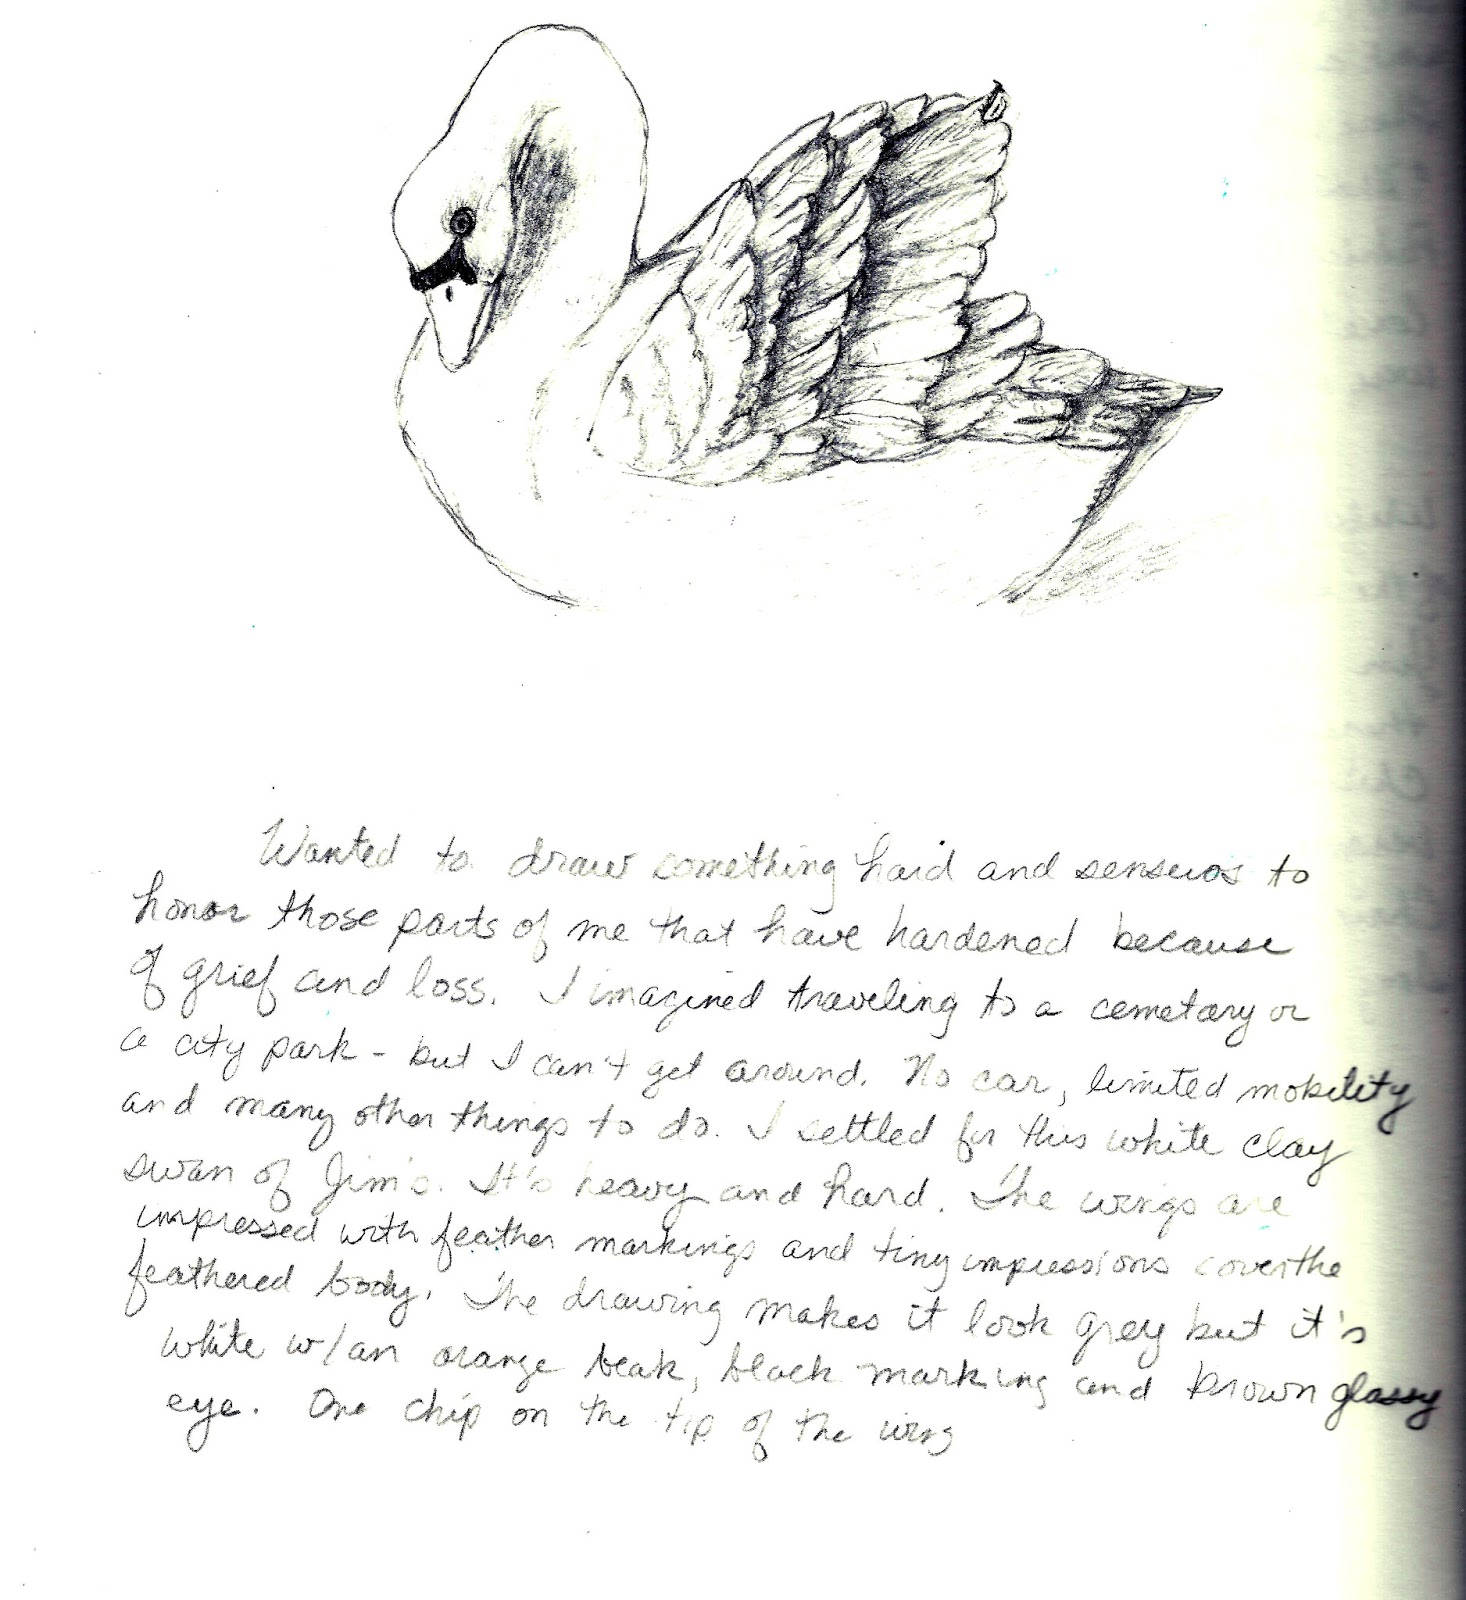 Wanted to draw something hard and sensuos to
honor those parts of me that have hardened because
of grief and loss. I imagined traveling to a cemetary or
a city park - but I can't get around. No car, limited mobility
and many other things to do. I settled for this white clay
swan of Jim's. It's heavy and hard. The wings are
impressed with feather markings and tiny impressions cover the
feathered body. The drawing makes it look grey but it's
white w/an orange beak, black marking and brown glassy
eye. One chip on the tip of the wing